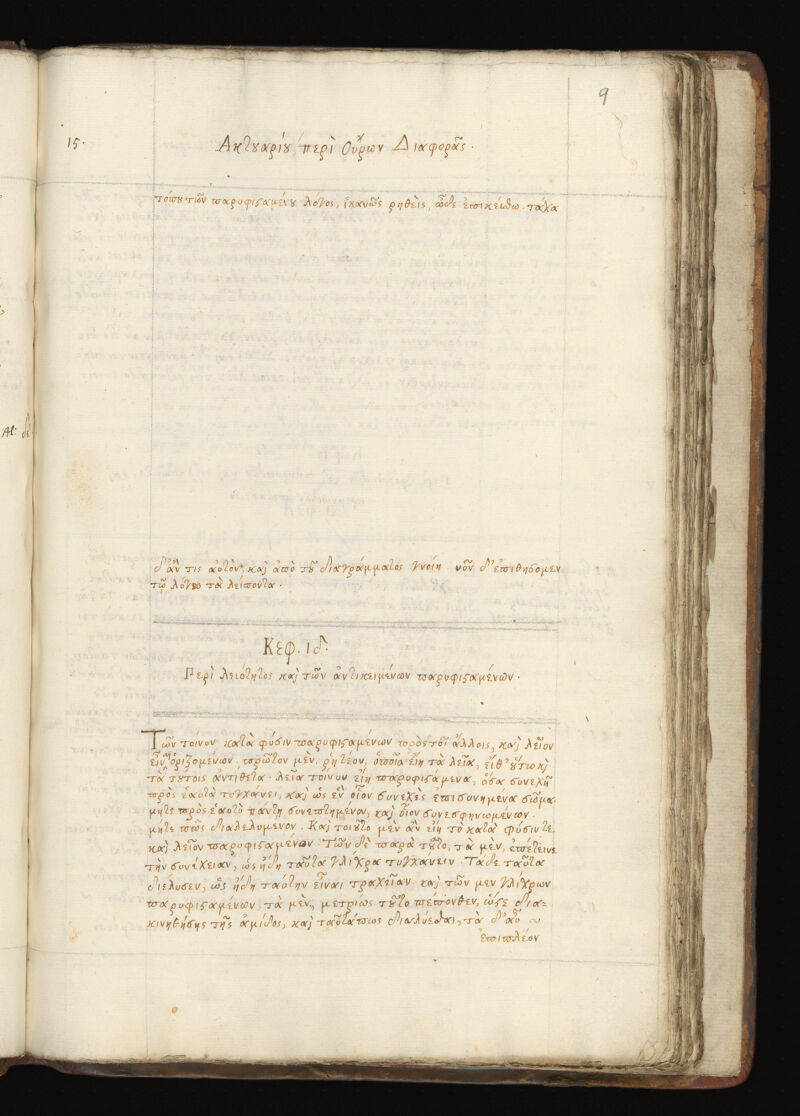 9
15.
Ἀκτουαρίου περὶ Οὔρων Διαφορᾶς.
τόπου τῶν παρυφισαμένου λόγος, ἱκανῶς ρηθεὶς, ὧδε ἐπικείσθω. τάχα
δ' ἄν τις αὐτὸν καὶ ἀπὸ τοῦ διαγράμματος γνοίη νῦν δ' ἐπιθήσομεν
τῷ λόγῳ τὰ λείποντα.
Κεφ. ιδ.
Περὶ λειότητος καὶ τῶν ἀντικειμένων παρυφισαμένων.
Τῶν τοίνυν κατὰ φύσιν παρυφισαμένων πρὸς τοῖς ἄλλοις, καὶ λεῖον
εἶναι ὁριζομένων, πρῶτον μὲν, ῥητέον, ὁποῖα εἴη τὰ λεῖα, εἶθ' οὕτω καὶ
τὰ τούτοις ἀντίθετα. λεῖα τοίνυν εἴη παρυφισάμενα, ὅσα συνεχῆ
πρὸς ἑαυτὰ τυγχάνει, καὶ ὡς ἓν οἷον συνεχὲς ἐπισυνημένα σῶμα
μήτε πρὸς ἑαυτὸ πάντη συνεπτημένον, καὶ οἷον συνεσφηνωμένον.
μήτε πως διαλελυμένον. Καὶ τοιοῦτο μὲν ἂν εἴη τὸ κατὰ φύσιν τε
καὶ λεῖον παρυφισαμένων. Τῶν δὲ παρὰ τοῦτο, τὰ μὲν, ἐπέτεινε
τὴν συνέχειαν, ὡς ἤδη ταῦτα γλίχρα τυγχάνειν. Τὰ δὲ ταῦτα
διέλυσεν, ὡς ἤδη ταύτην εἶναι τραχεῖαν. καὶ τῶν μὲν γλίχρων
παρυφισαμένων, τὰ μὲν, μετρίως τοῦτο πέπονθεν, ὥστε δια-
κινηθείσης τῆς ἀμίδος, καὶ ταῦτά πως διαλύεσθαι, τὰ δ' αὖ
ἐπιπλέον